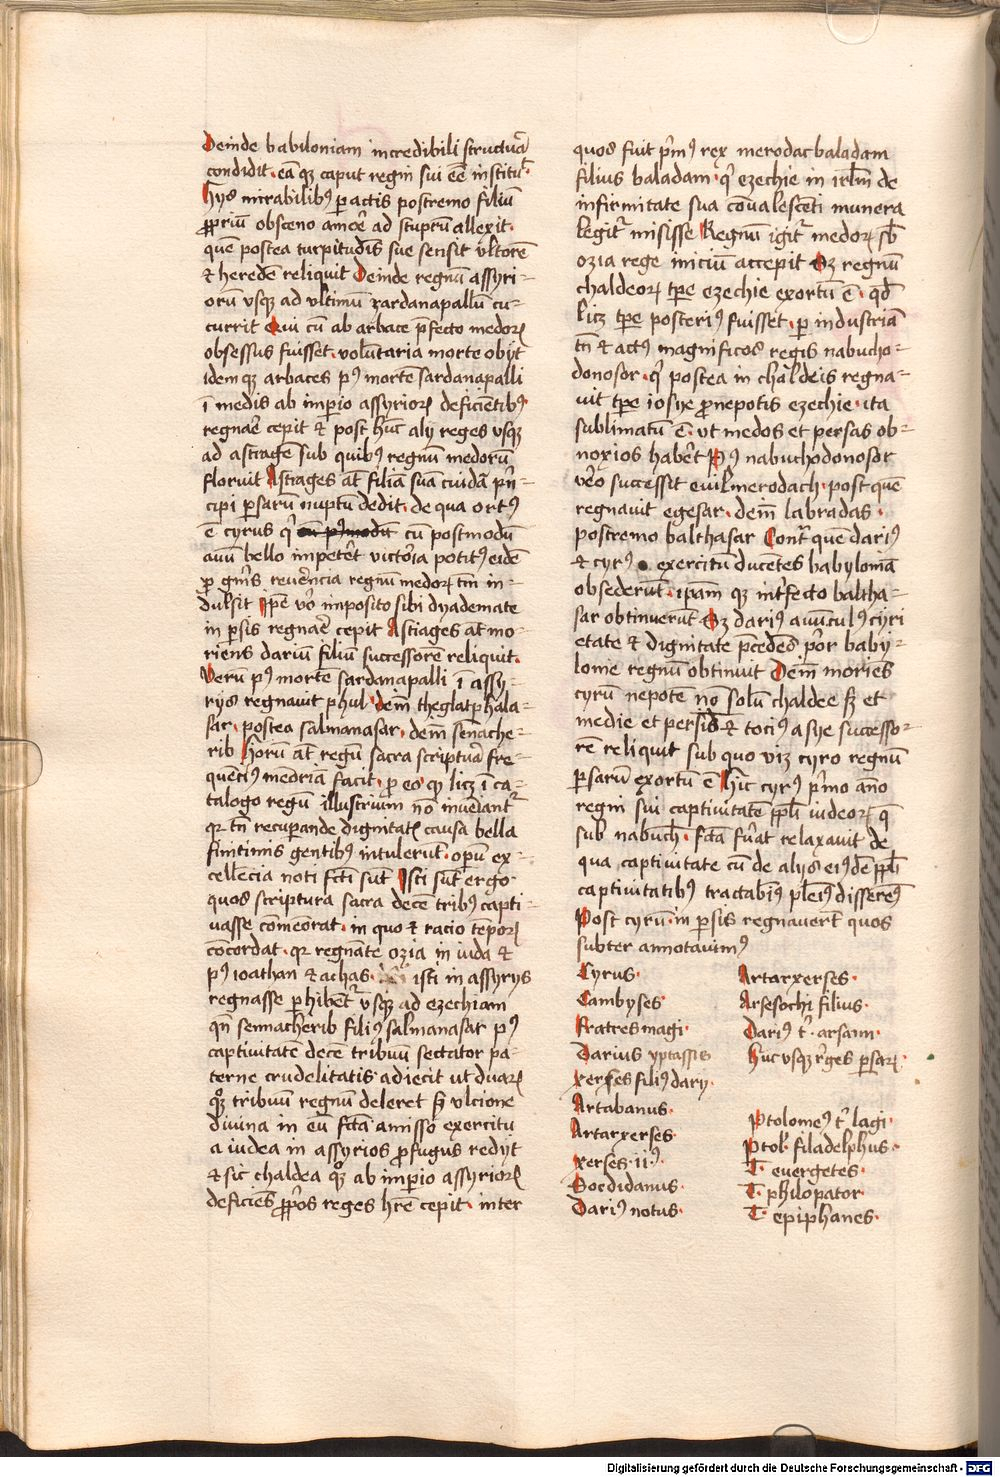 Deinde babiloniam incredibili structura᷑
condidit · eā qꝫ caput regni sui eē institu᷑t
Hys mirabilibꝰ ꝑactis postremo filiū
ꝓpriū obsceno amoē ad stuprū allexit ·
que postea turpitudīs sue sensit vltorē
⁊ heredē reliquit Deinde regnū assyri=
orū vsqꝫ ad vltimū xardanapallū cu=
currit Qui cū ab arbace p̄fecto medoꝝ
obsessus fuisset · volūtaria morte obijt
idem qꝫ arbaces pꝰ mortē sardanapalli
ī medis ab imꝑio assyrioꝝ deficiētibꝰ
regnaē cepit ⁊ post hūc aly reges vsqꝫ
ad astragē sub quibꝰ regnū medorū
floruit Astrages at̄ filiā suā cuidā pͥn
cipi ꝑsarū nuptū dedit · de qua ortꝰ
ē cyrus qͥ cū postmodū
auū bello impetēt victoīa potitꝰ eidē
ꝓ gn̄is reuēncia regnū medoꝝ tm̄ in=
dulsit Ip̄e vͦo imposito sibi dyademate
in ꝑsis regnaē cepit Astiages at̄ mo=
riens dariū filiū successorē reliquit ·
Verū pꝰ mortē sardanapalli ī assy=
rijs regnauit phul · dem̄ theglatphala=
sar · postea salmanasar · dem̄ senache=
rib Horū at̄ regū sacra scriptuā fre=
quēciꝰ meōriā facit · ꝑ eo qͦ licꝫ ī ca=
talogo regū illustrium nō inueīant᷑
qꝛ tn̄ recuꝑande dignitatꝭ causa bella
finitimis gentibꝰ intulerūt · opū ex=
cellēcia noti fc̄ti sūt Isti sūt ergo
quos scriptura sacra decē tribꝰ capti=
uasse cōmeōrat · in quo ⁊ racio tēpoꝝ
cōcordat · qꝛ regnāte ozia in iuda ⁊
pꝰ ioathan ⁊ achas · isti in assyrys
regnasse ꝑhibēt᷑ vsqꝫ ad ezechiam
qn̄ sennacherib filiꝰ salmanasar pꝰ
captiuitatē decē tribuū sectator pa=
terne crudelitatis adiecit ut duaꝝ
qͦꝫ tribuū regnū deleret sꝫ vlcione
diuina in eū fc̄ta amisso exercitu
a iudea in assyrios ꝓfugus redyt
⁊ sic chaldea qͦꝫ ab imꝑio assyrioꝝ
deficiēs ꝓp̄os reges hr̄e cepit · inter
quos fuit pͥmꝰ rex merodac baladam
filius baladam · qͥ ezechie in irl̄m de
infirmitate sua cōualescēti munera
legit᷑ misisse Regnū igit᷑ medoꝝ sb̄
ozia rege iniciū accepit Sꝫ regnū
chaldeoꝝ tꝑe ezechie exortū ē · qd̄
licꝫ tꝑe posteriꝰ fuisset · ꝑ industriā
tn̄ ⁊ actꝰ magnificos regis nabucho=
donosor · qͥ postea in chaldeis regna=
uit tꝑe iosye ꝓnepotis ezechie · ita
sublimatū ē · vt medos et persas ob=
noxios habēt Pꝰ nabuchodonosor
vēo successit euilmerodach · post quē
regnauit egesar · dem̄ labradas ·
postremo balthasar Contͣ quē dariꝰ
⁊ cyrꝰ exercitū ducētes babyloniā
obsederūt · ip̄am qꝫ int᷑fecto baltha=
sar obtinuerūt Sꝫ dariꝰ auūculꝰ cyri
etate ⁊ dignitate p̄cedēs pͥor baby=
lonie regnū obtinuit Dem̄ moriēs
cyrū nepotē nō solū chaldee sꝫ et
medie et persidꝭ ⁊ tociꝰ asye successo=
rē reliquit sub quo vicꝫ cyro regnū
ꝑsarū exortū ē Hic cyrꝰ pͥmo ān̄o
regni sui captiuitatē ppl̄i iudeoꝝ q̄
sub nabuch̄ · fc̄ta fūat relaxauit de
qua captiuitate cū de alijs eiꝰdē ppl̄i
captiuitatibꝰ tractabimꝰ pleniꝰ disseremꝰ
Post cyrū in ꝑsis regnauerūt quos
subter annotauimꝰ
Cyrus ·
Cambyses ·
Fratres magi ·
Darius yptassis
xerses filiꝰ dary ·
Artabanus ·
Artarxerses ·
xerses · ii · ꝰ ·
Socdidanus ·
Dariꝰ notus ·
Artarxerses ·
Arsesochi filius ·
Dariꝰ t᷑ · arsami ·
Huc vsqꝫ r̄ges ꝑsaꝝ ·
Ptolomeꝰ t᷑ lagi ·
Ptol · filadelphus ·
T · euergetes ·
T · philopator ·
T · epiphanes ·
Digitalisierung gefördert durch die Deutsche Forschungsgemeinschaft - DFG